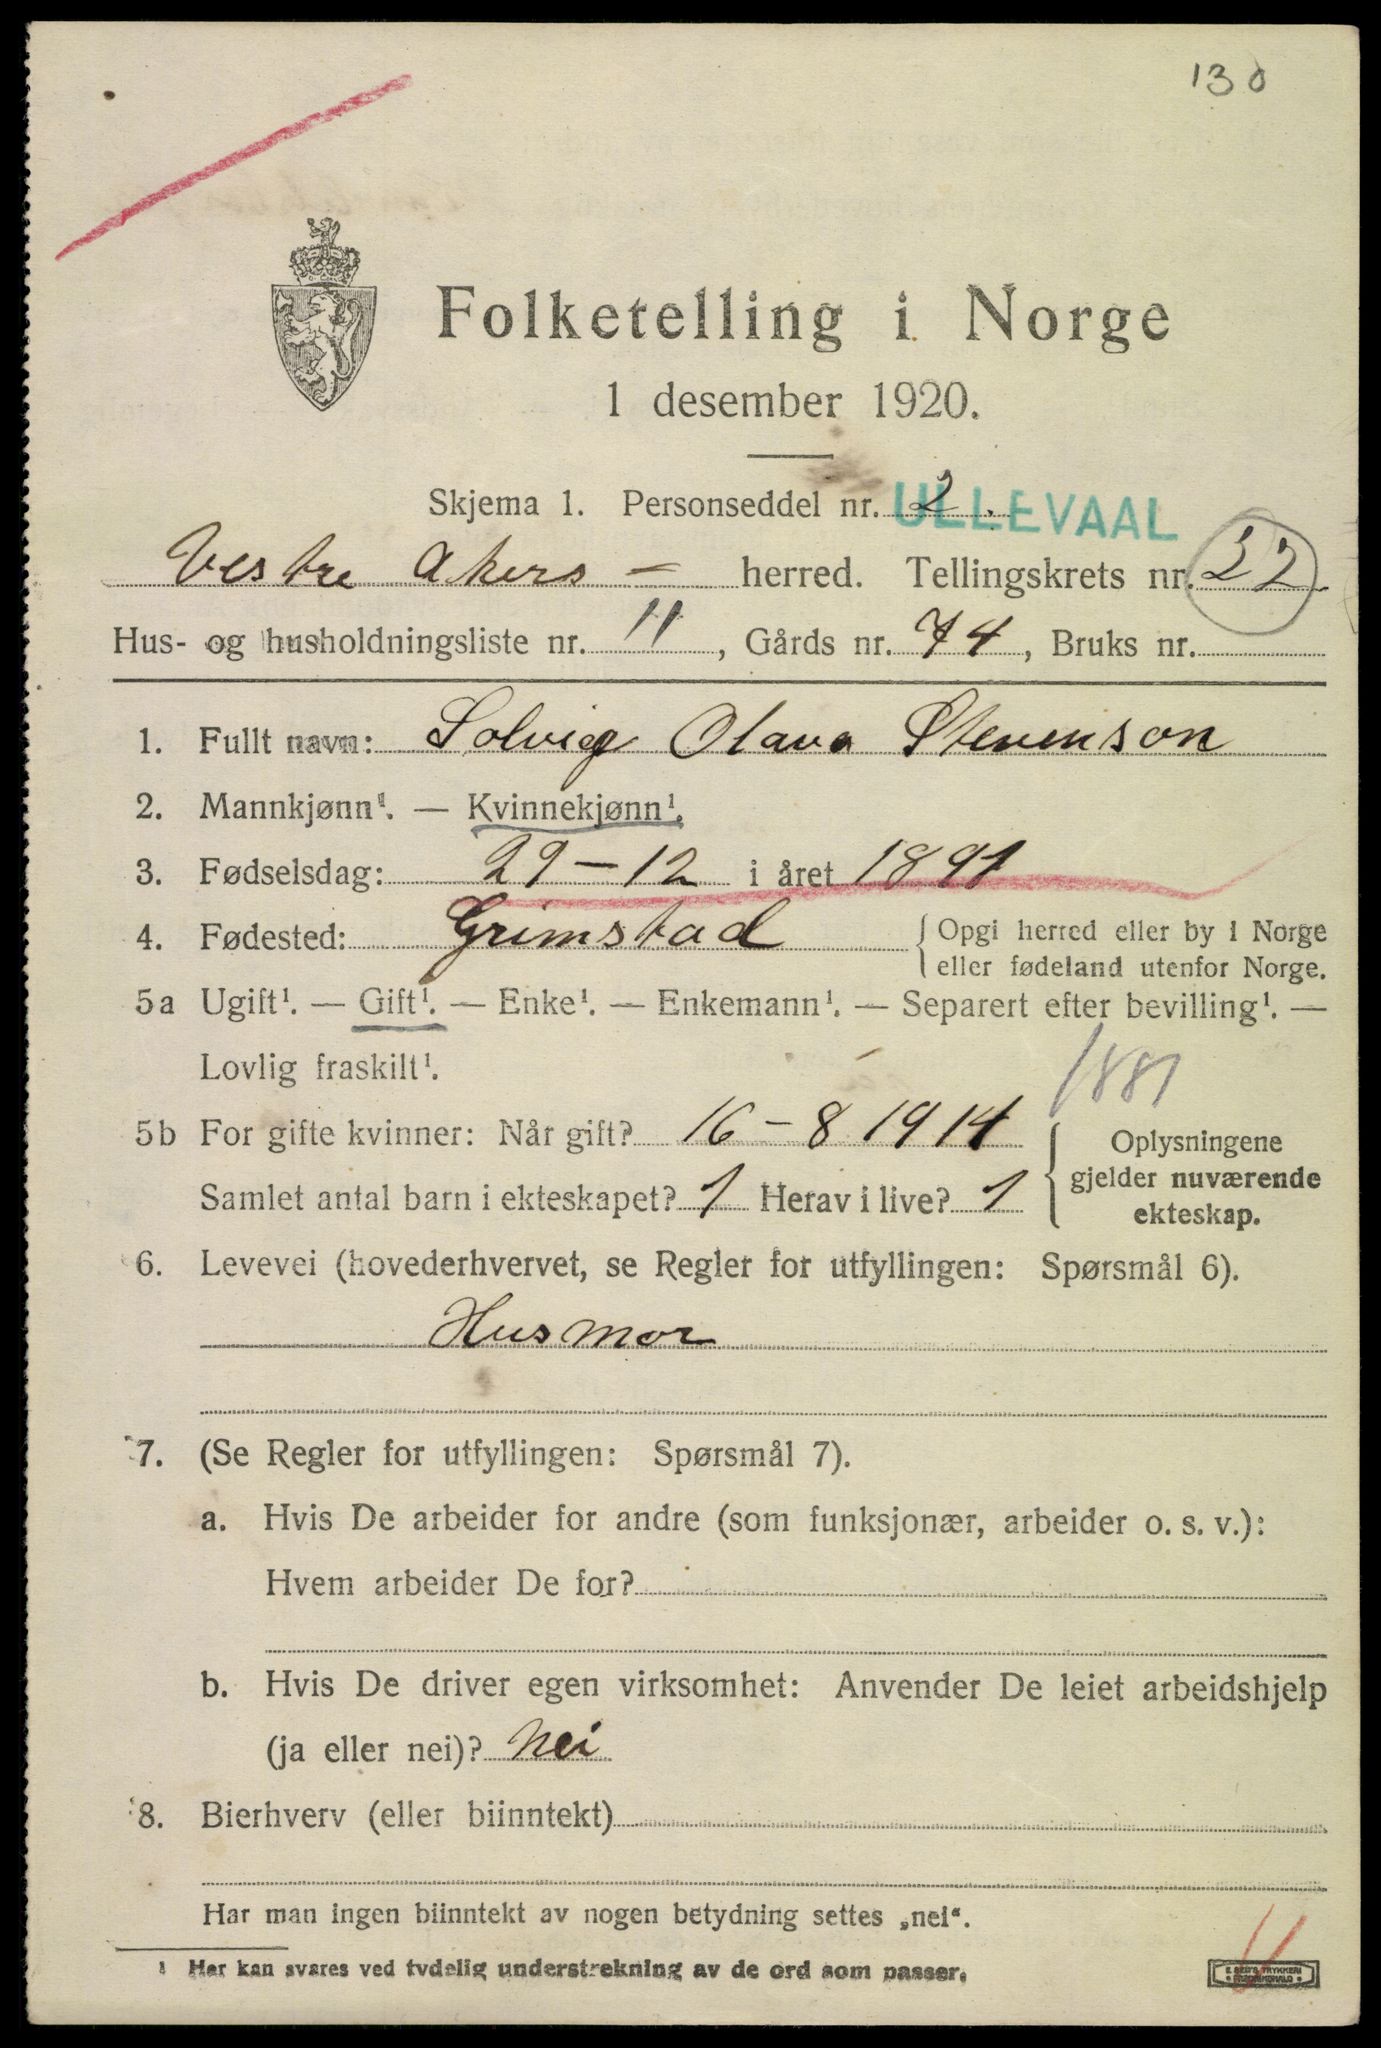 130
Folketelling i Norge
1 desember 1920.
Skjema 1. Personseddel nr. 2. ULLEVAAL
Vestre Akers - herred. Tellingskrets nr. 32
Hus- og husholdningsliste nr. 11, Gårds nr. 74, Bruks nr.
1. Fullt navn: Solvig Olava Stevenson
2. Mannkjønn¹. — Kvinnekjønn¹.
3. Fødselsdag: 29-12 i året 1891
4. Fødested: Grimstad { Opgi herred eller by i Norge
eller fødeland utenfor Norge.
5a Ugift¹. — Gift¹. — Enke¹. — Enkemann¹. — Separert efter bevilling¹. —
Lovlig fraskilt¹.
1881
5b For gifte kvinner: Når gift? 16-8 1914
Samlet antal barn i ekteskapet? 1 Herav i live? 1
{ Oplysningene
gjelder nuværende
ekteskap.
6. Levevei (hovederhvervet, se Regler for utfyllingen: Spørsmål 6).
Husmor
7. (Se Regler for utfyllingen: Spørsmål 7).
a. Hvis De arbeider for andre (som funksjonær, arbeider o. s. v.):
Hvem arbeider De for?
b. Hvis De driver egen virksomhet: Anvender De leiet arbeidshjelp
(ja eller nei)? Nei
8. Bierhverv (eller biinntekt)
Har man ingen biinntekt av nogen betydning settes „nei“.
1 Her kan svares ved tydelig understrekning av de ord som passer.